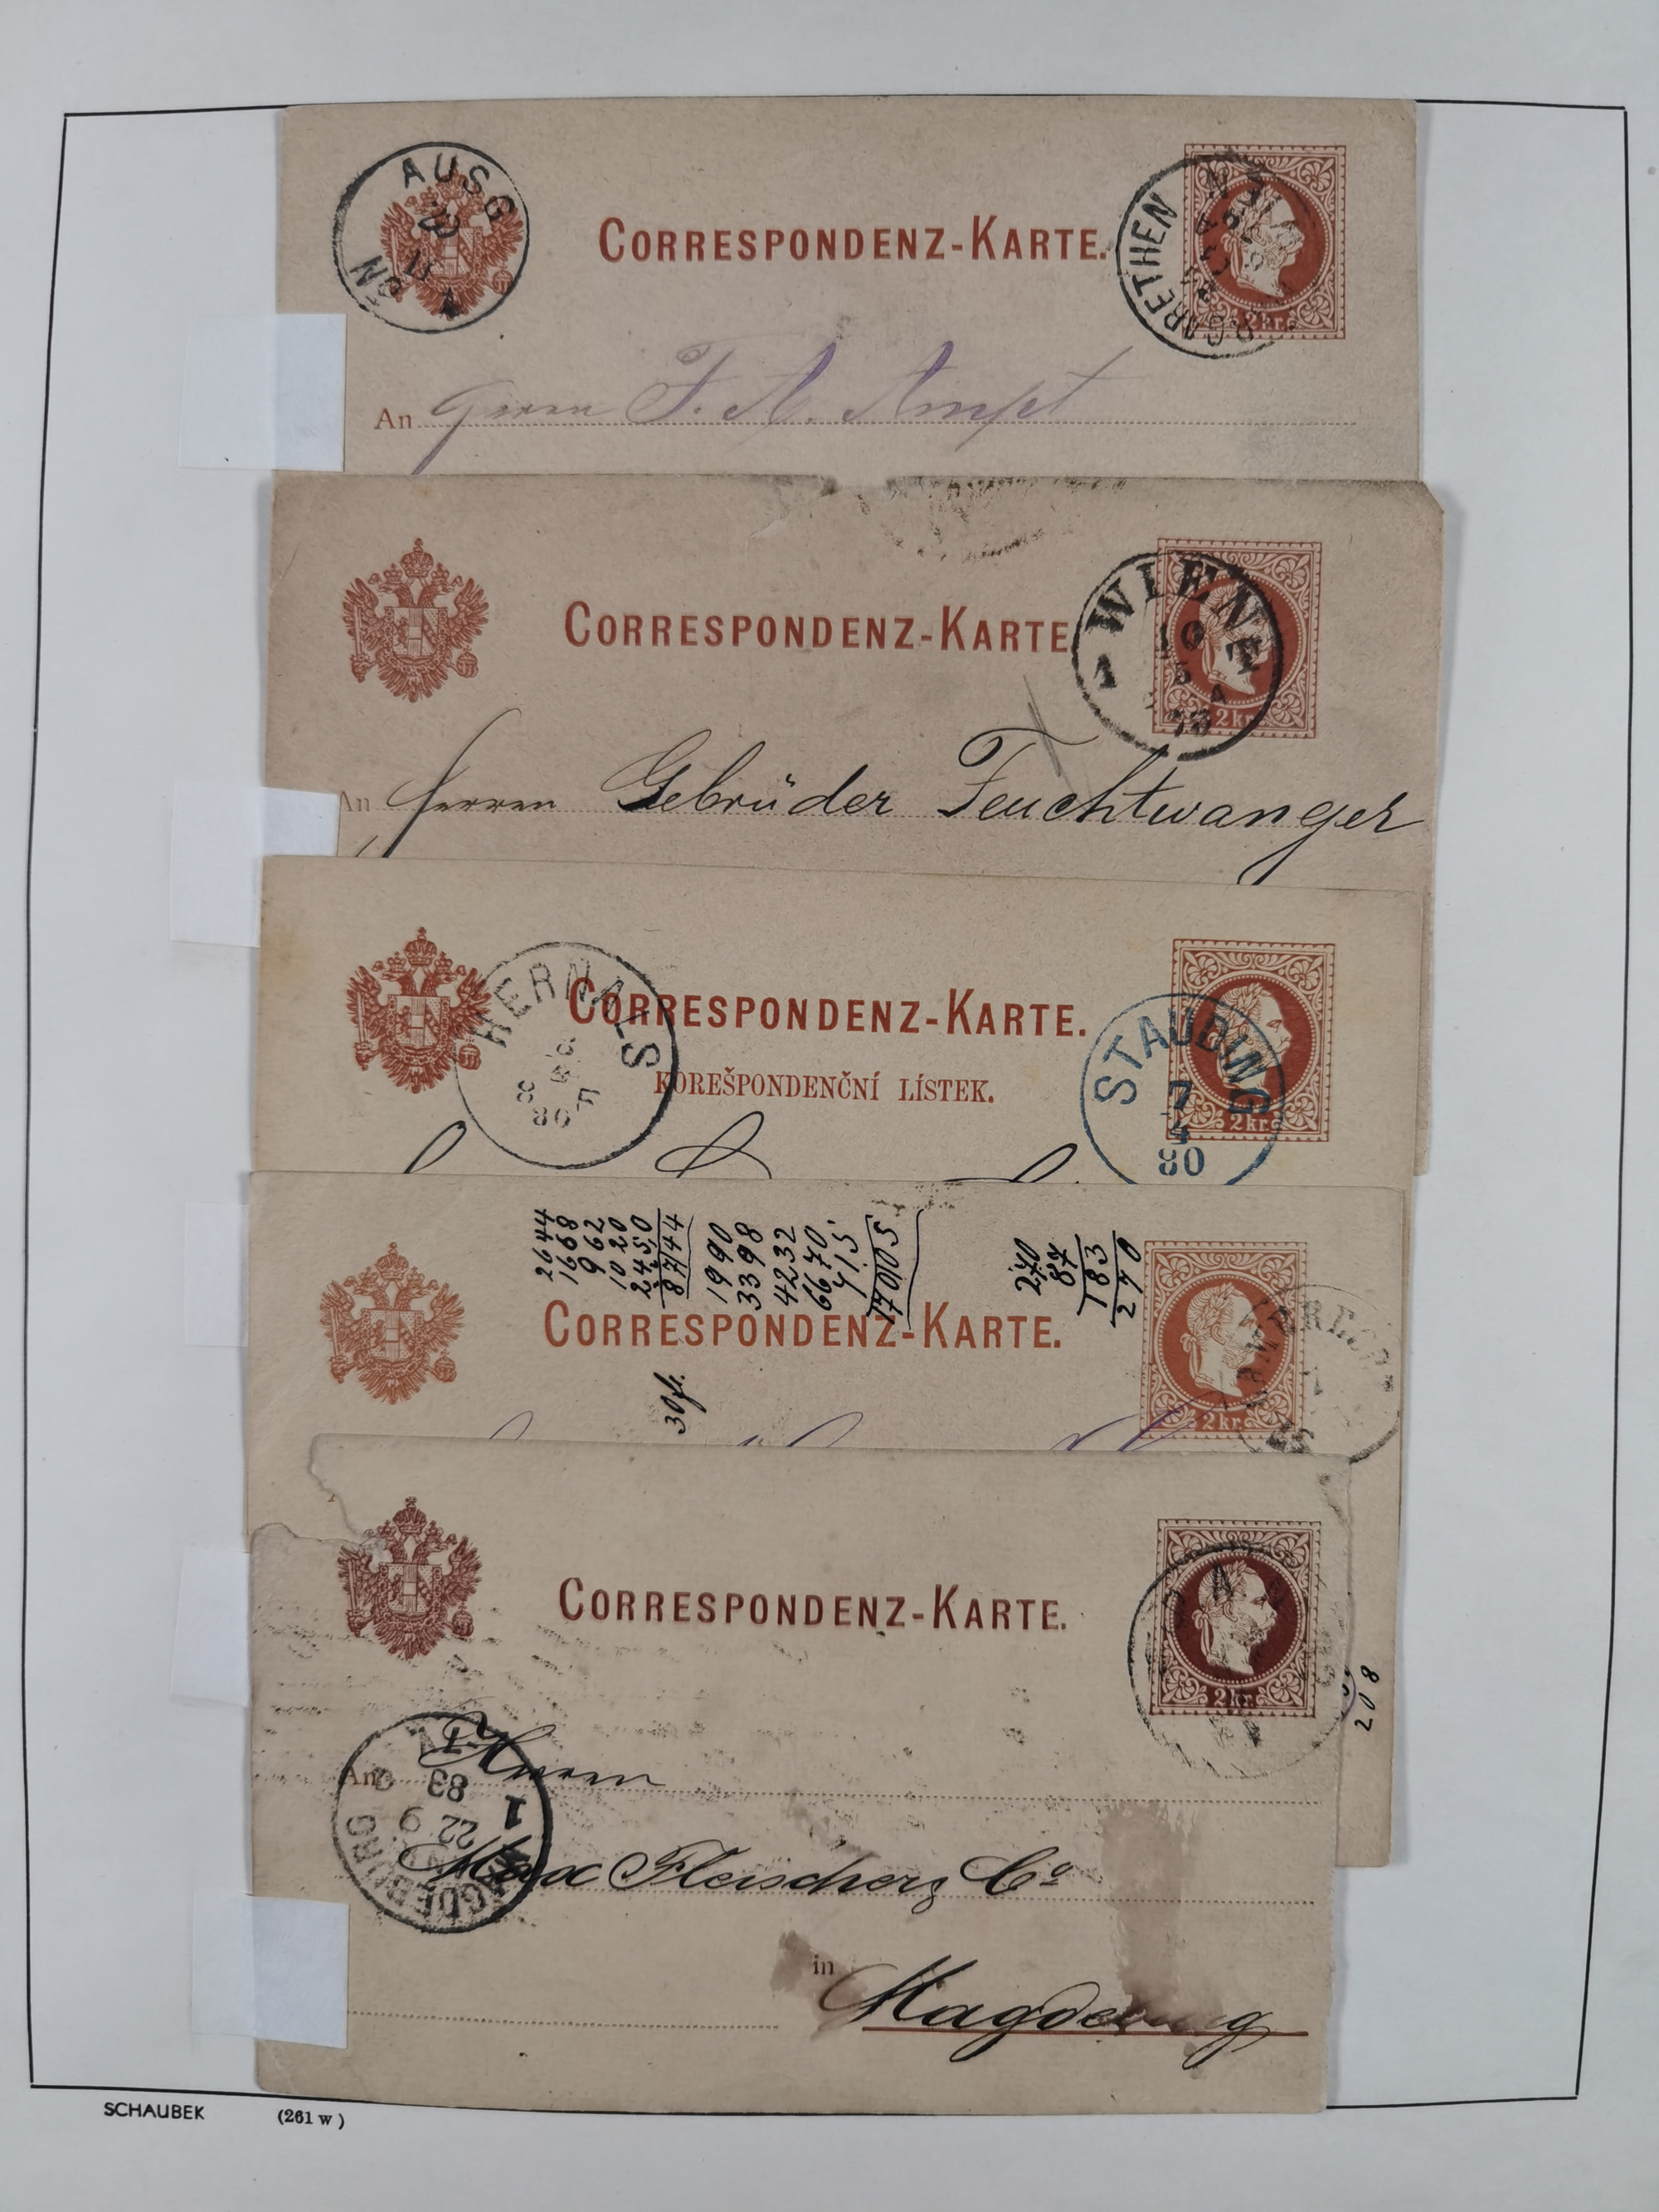 AUSG
CORRESPONDENZ-KARTE.
2 kr.
An Herrn F. A. Ampt
CORRESPONDENZ-KARTE
WIEN
1 1
10
5
A
78
2 kr.
An Herren Gebrüder Feuchtwanger
CORRESPONDENZ-KARTE.
KOREŠPONDENČNÍ LÍSTEK.
HERNALS
8
80
F
STAUDING
7
4
80
2 kr.
2644
1668
962
1020
2450
8744
1990
3398
4232
6670
415
17005
270
87
183
270
CORRESPONDENZ-KARTE.
30 fl.
2 kr.
CORRESPONDENZ-KARTE.
2 kr.
208
An Herrn
MAGDEBURG
1
22 9
83
Max Fleischer & Co
in Magdeburg
SCHAUBEK (261 w)